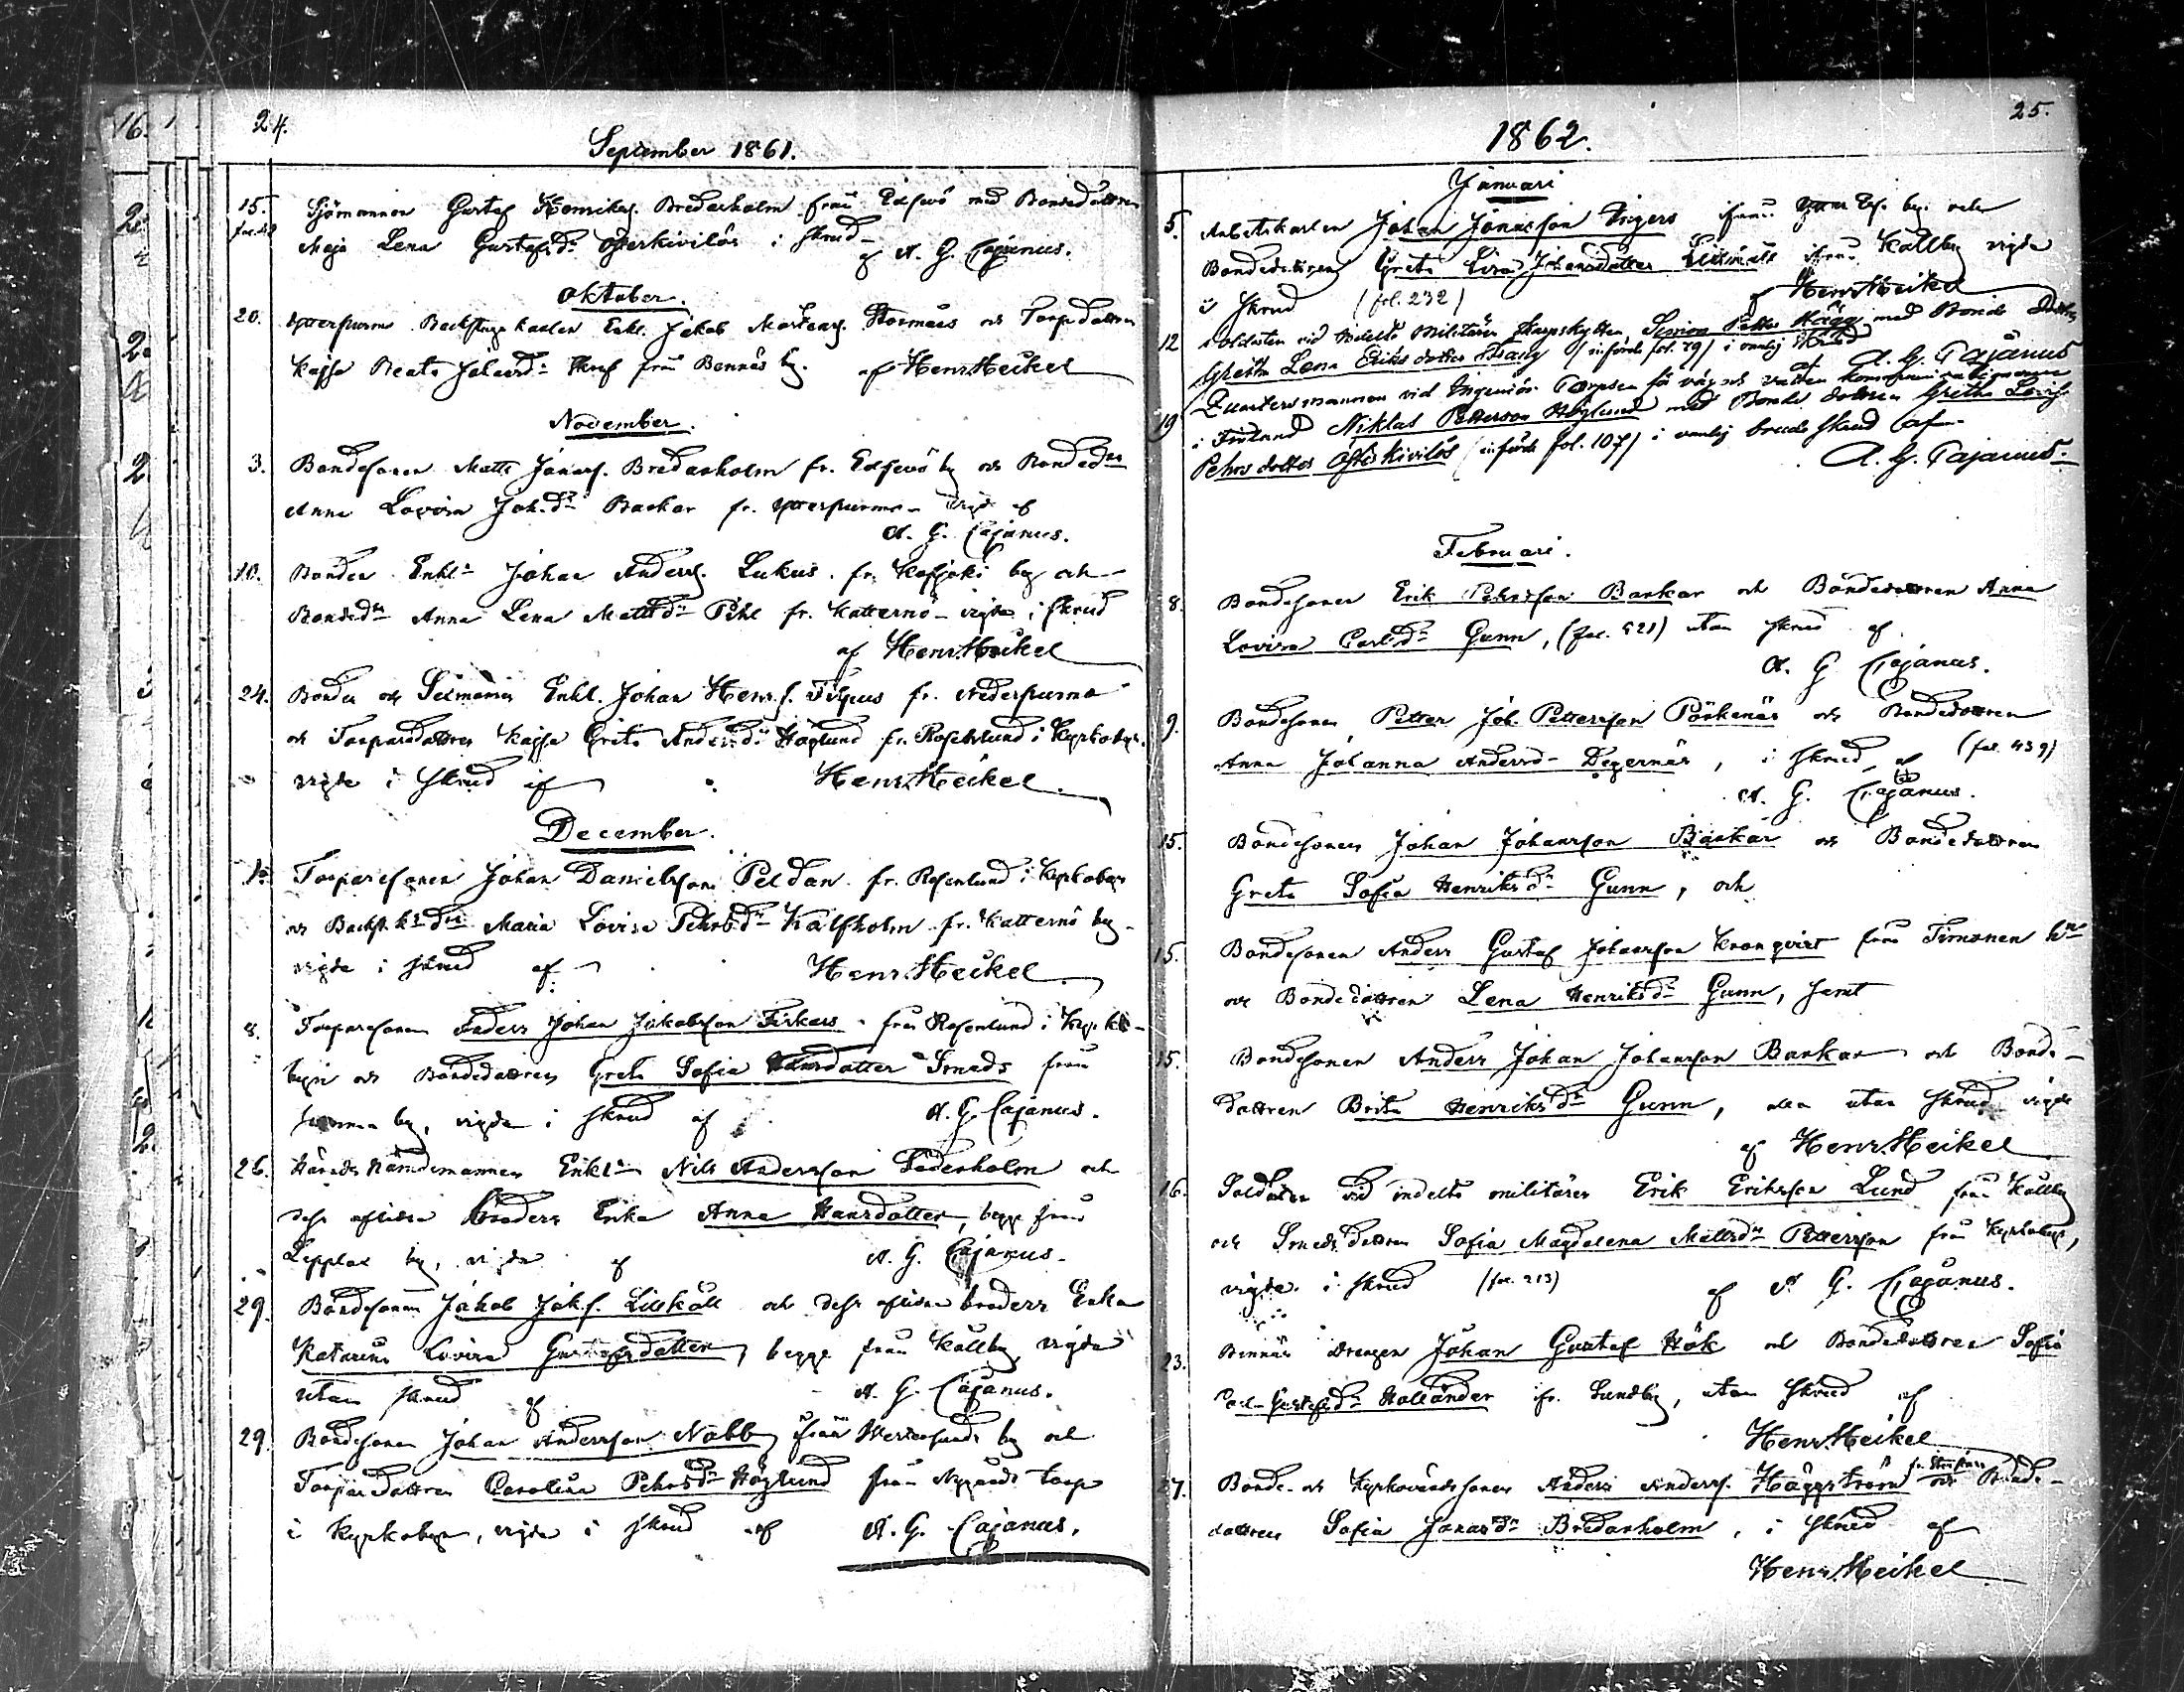 24.
September 1861.
15. Sjömannen Gustaf Henriks. Bredarholm från Edsevö med Bondedottren
Maja Lena Gustafsdr Österkivilös i skrud
af A. G. Cajanus.
Oktober.
20. Ytterpurmo Backstugukarlen Enkl. Jakob Mårtens. Stormåns och Torpedottren
Kajsa Beata Johansdr från Bennäs by. af Henr. Heikel
November.
3. Bondesonen Matts Jonass. Bredarholm fr. Edsevö by och Bondedrn
Anna Lovisa Joh.dr Backar fr. Ytterpurmo vigde af
A. G. Cajanus.
10. Bonden Enkln Johan Anderss. Lukus fr. Kofjoki by och
Bondedrn Anna Lena Mattsdr Pihl fr. Katternö vigde i skrud
af Henr. Heikel
24. Bonden och Enkl. Johan Henr.s. fr. Nederpurmo
och Torparedottren Kajsa Greta Andersdr Höglund fr. Rosenlund i Kyrkobyn.
vigde i skrud af Henr. Heikel
December.
1. Torparesonen Johan Danielsson Peldan fr. Rosenlund i Kyrkobyn
och Backst.k.drn Maria Lovisa Pehrsdr Kalfholm fr. Katternö by
vigde i skrud af Henr. Heikel
8. Torparesonen Anders Johan Jakobsson Firkars från Rosenlund i Kyrko-
byn och Bondedottren Greta Sofia Hansdotter Smeds från
samma by, vigde i skrud af A. G. Cajanus.
26. Härads Nämdemannen Enkln Nils Andersson Söderholm och
dess aflidna broders Enka Anna Hansdotter, begge från
Lepplax by, vigde af A. G. Cajanus
29. Bondesonen Jakob Jak.s. Lillkåll och dess aflidna broders Enka
Katarina Lovisa Gustafsdotter, begge från Kållby, vigde
utan skrud af A. G. Cajanus.
29. Bondesonen Johan Andersson Nabb ifrån Westersunds by och
Torparedottren Carolina Pehrsdr Höglund från Nygårds torp
i Kyrkobyn, vigde i skrud af A. G. Cajanus.
25.
1862.
Januari
5. Arbetskarlen Johan Jonasson ifrån by och
Bondedottren Greta Lisa Johansdotter Lillkåll ifrån Kållby vigde
i skrud (fol. 232) af Henr. Heikel
12 Soldaten vid Indelta Militären Skarpskytten Simon Petter Hägg med Bonde Dottren
Gretha Lena Eriks dotter (införde fol. 79) i vanlig skrud
af A. G. Cajanus
19 Quartersmannen vid Ingeniörs Corpsen för väg och vatten kommunikationerne
i Finland Niklas Pettersson Höglund med Bonde dottren Gretha Lovisa
Pehrs dotter Österkivilös (införde fol. 107) i vanlig brudskrud af
A. G. Cajanus.
Februari.
8. Bondesonen Erik Pehrsson Backar och Bondedottren Anna
Lovisa Carlsdr Gunn, (fol. 521) utan skrud af
A. G Cajanus.
9. Bondesonen Petter Joh. Pettersson Pörkenäs och Bondedottren
Anna Johanna Andersdr Degernäs, i skrud, af (fol. 439)
A. G. Cajanus.
15. Bondesonen Johan Johansson Backar och Bondedottren
Greta Sofia Henriksdr Gunn, och
15. Bondesonen Anders Gustaf Johansson Kronqvist från Timonen hn
och Bondedottren Lena Henriksdr Gunn, samt
15. Bondesonen Anders Johan Johansson Backar och Bonde-
dottren Brita Henriksdr Gunn, alla utan skrud vigde
af Henr. Heikel
16. Soldaten vid indelta militären Erik Eriksson Lund från Kållby
och Smedsdottren Sofia Magdalena Mattsdr Pettersson från Kyrkobyn,
vigde i skrud (fol. 213) af A G. Cajanus.
23. Bennäs drengen Johan Gustaf Hök och Bondedottren Sofia
Gustafsdr Holländer fr. Sundby, utan skrud af
Henr. Heikel
27. Bonde- och Kyrkovärdssonen Anders Anderss. Häggström och Bonde-
dottren Sofia Jonasdr Bredarholm, i skrud af
Henr. Heikel